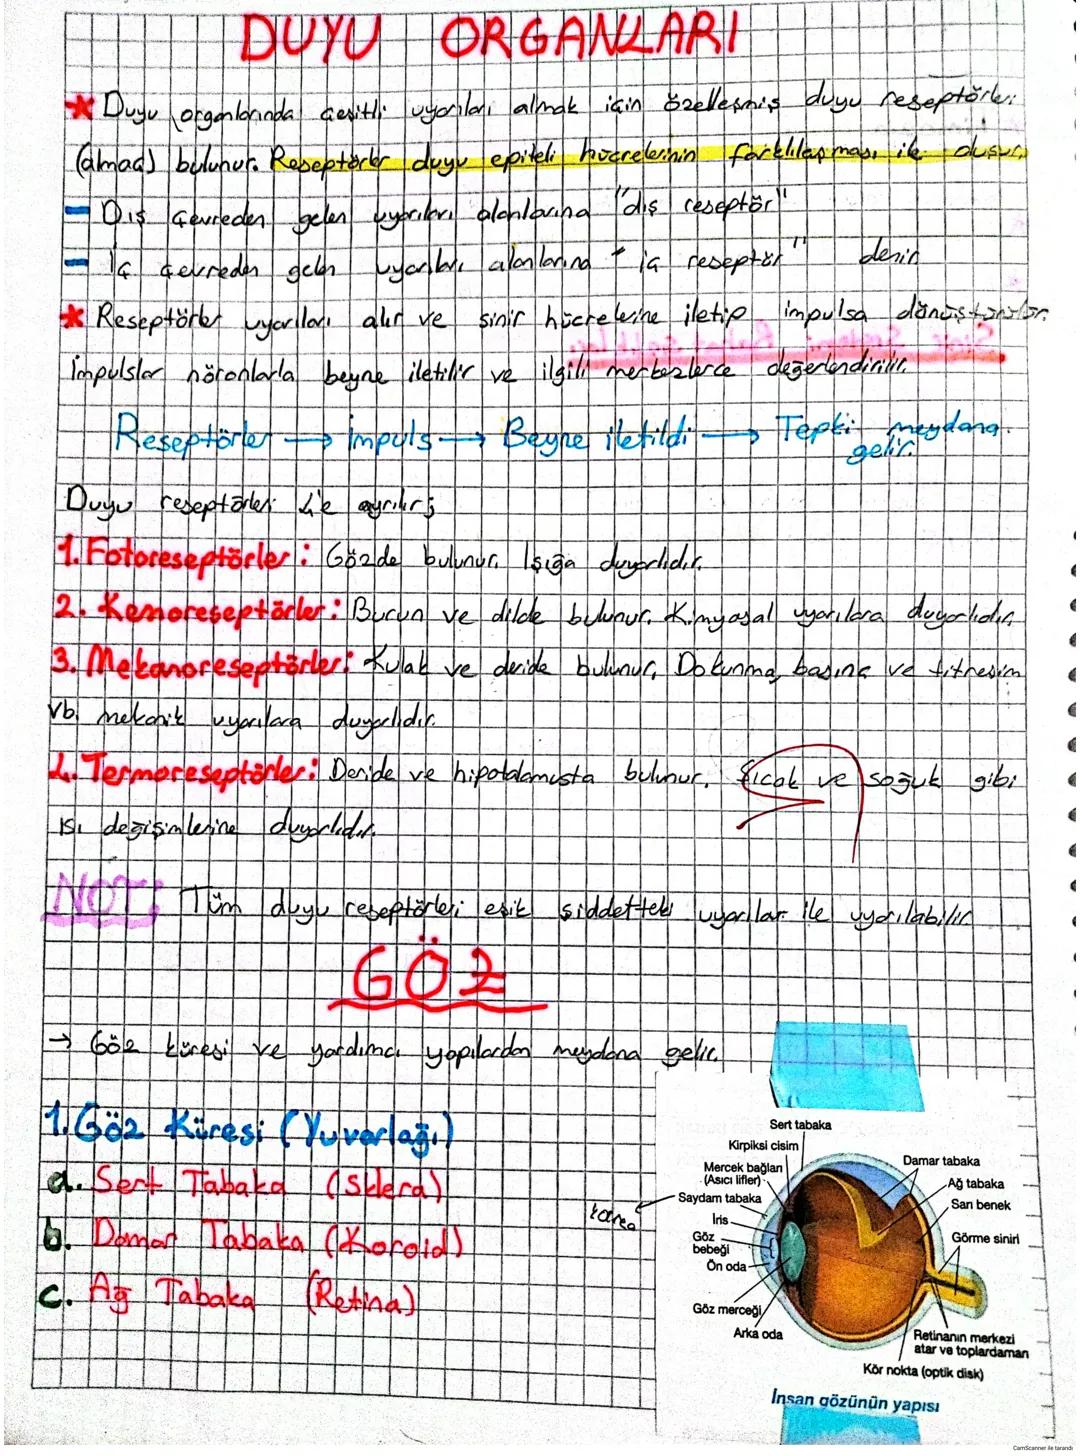 DUYU ORGANLARI
* Duyu organlarında çeşitli uyarıları almak için özelleşmiş duyu reseptörleri
(almaç) bulunur. Reseptörler duyu epiteli hücrelerinin farklılaşması ile oluşur.
- Dış çevreden gelen uyarıları alanlarına "dış reseptör"
- İç çevreden gelen uyarıları alanlarına "iç reseptör" denir
* Reseptörler uyarıları alır ve sinir hücrelerine iletip impulsa dönüştürürler.
İmpulslar nöronlarla beyne iletilir ve ilgili merkezlerce değerlendirilir.
Reseptörler → İmpuls → Beyne iletildi → Tepki meydana
gelir.
Duyu reseptörleri 4'e ayrılır;
1. Fotoreseptörler: Gözde bulunur. Işığa duyarlıdır.
2. Kemoreseptörler: Burun ve dilde bulunur. Kimyasal uyarılara duyarlıdır.
3. Mekanoreseptörler: Kulak ve deride bulunur. Dokunma, basınç ve titreşim
vb. mekanik uyarılara duyarlıdır.
4. Termoreseptörler: Deride ve hipotalamusta bulunur. Sıcak ve soğuk gibi
ısı değişimlerine duyarlıdır.
NOT: Tüm duyu reseptörleri eşik şiddetteki uyarılar ile uyarılabilir.
GÖZ
→ Göz küresi ve yardımcı yapılardan meydana gelir.
1. Göz Küresi (Yuvarlağı)
a. Sert Tabaka (Sklera)
b. Damar Tabaka (Koroid)
c. Ağ Tabaka (Retina)
Sert tabaka
Kirpiksi cisim
Mercek bağları
(Asıcı lifler)
Saydam tabaka
İris
Göz
bebeği
Ön oda
Göz merceği
Arka oda
Damar tabaka
Ağ tabaka
Sarı benek
Görme siniri
Retinanın merkezi
atar ve toplardamarı
Kör nokta (optik disk)
İnsan gözünün yapısı
CamScanner ile tarandı